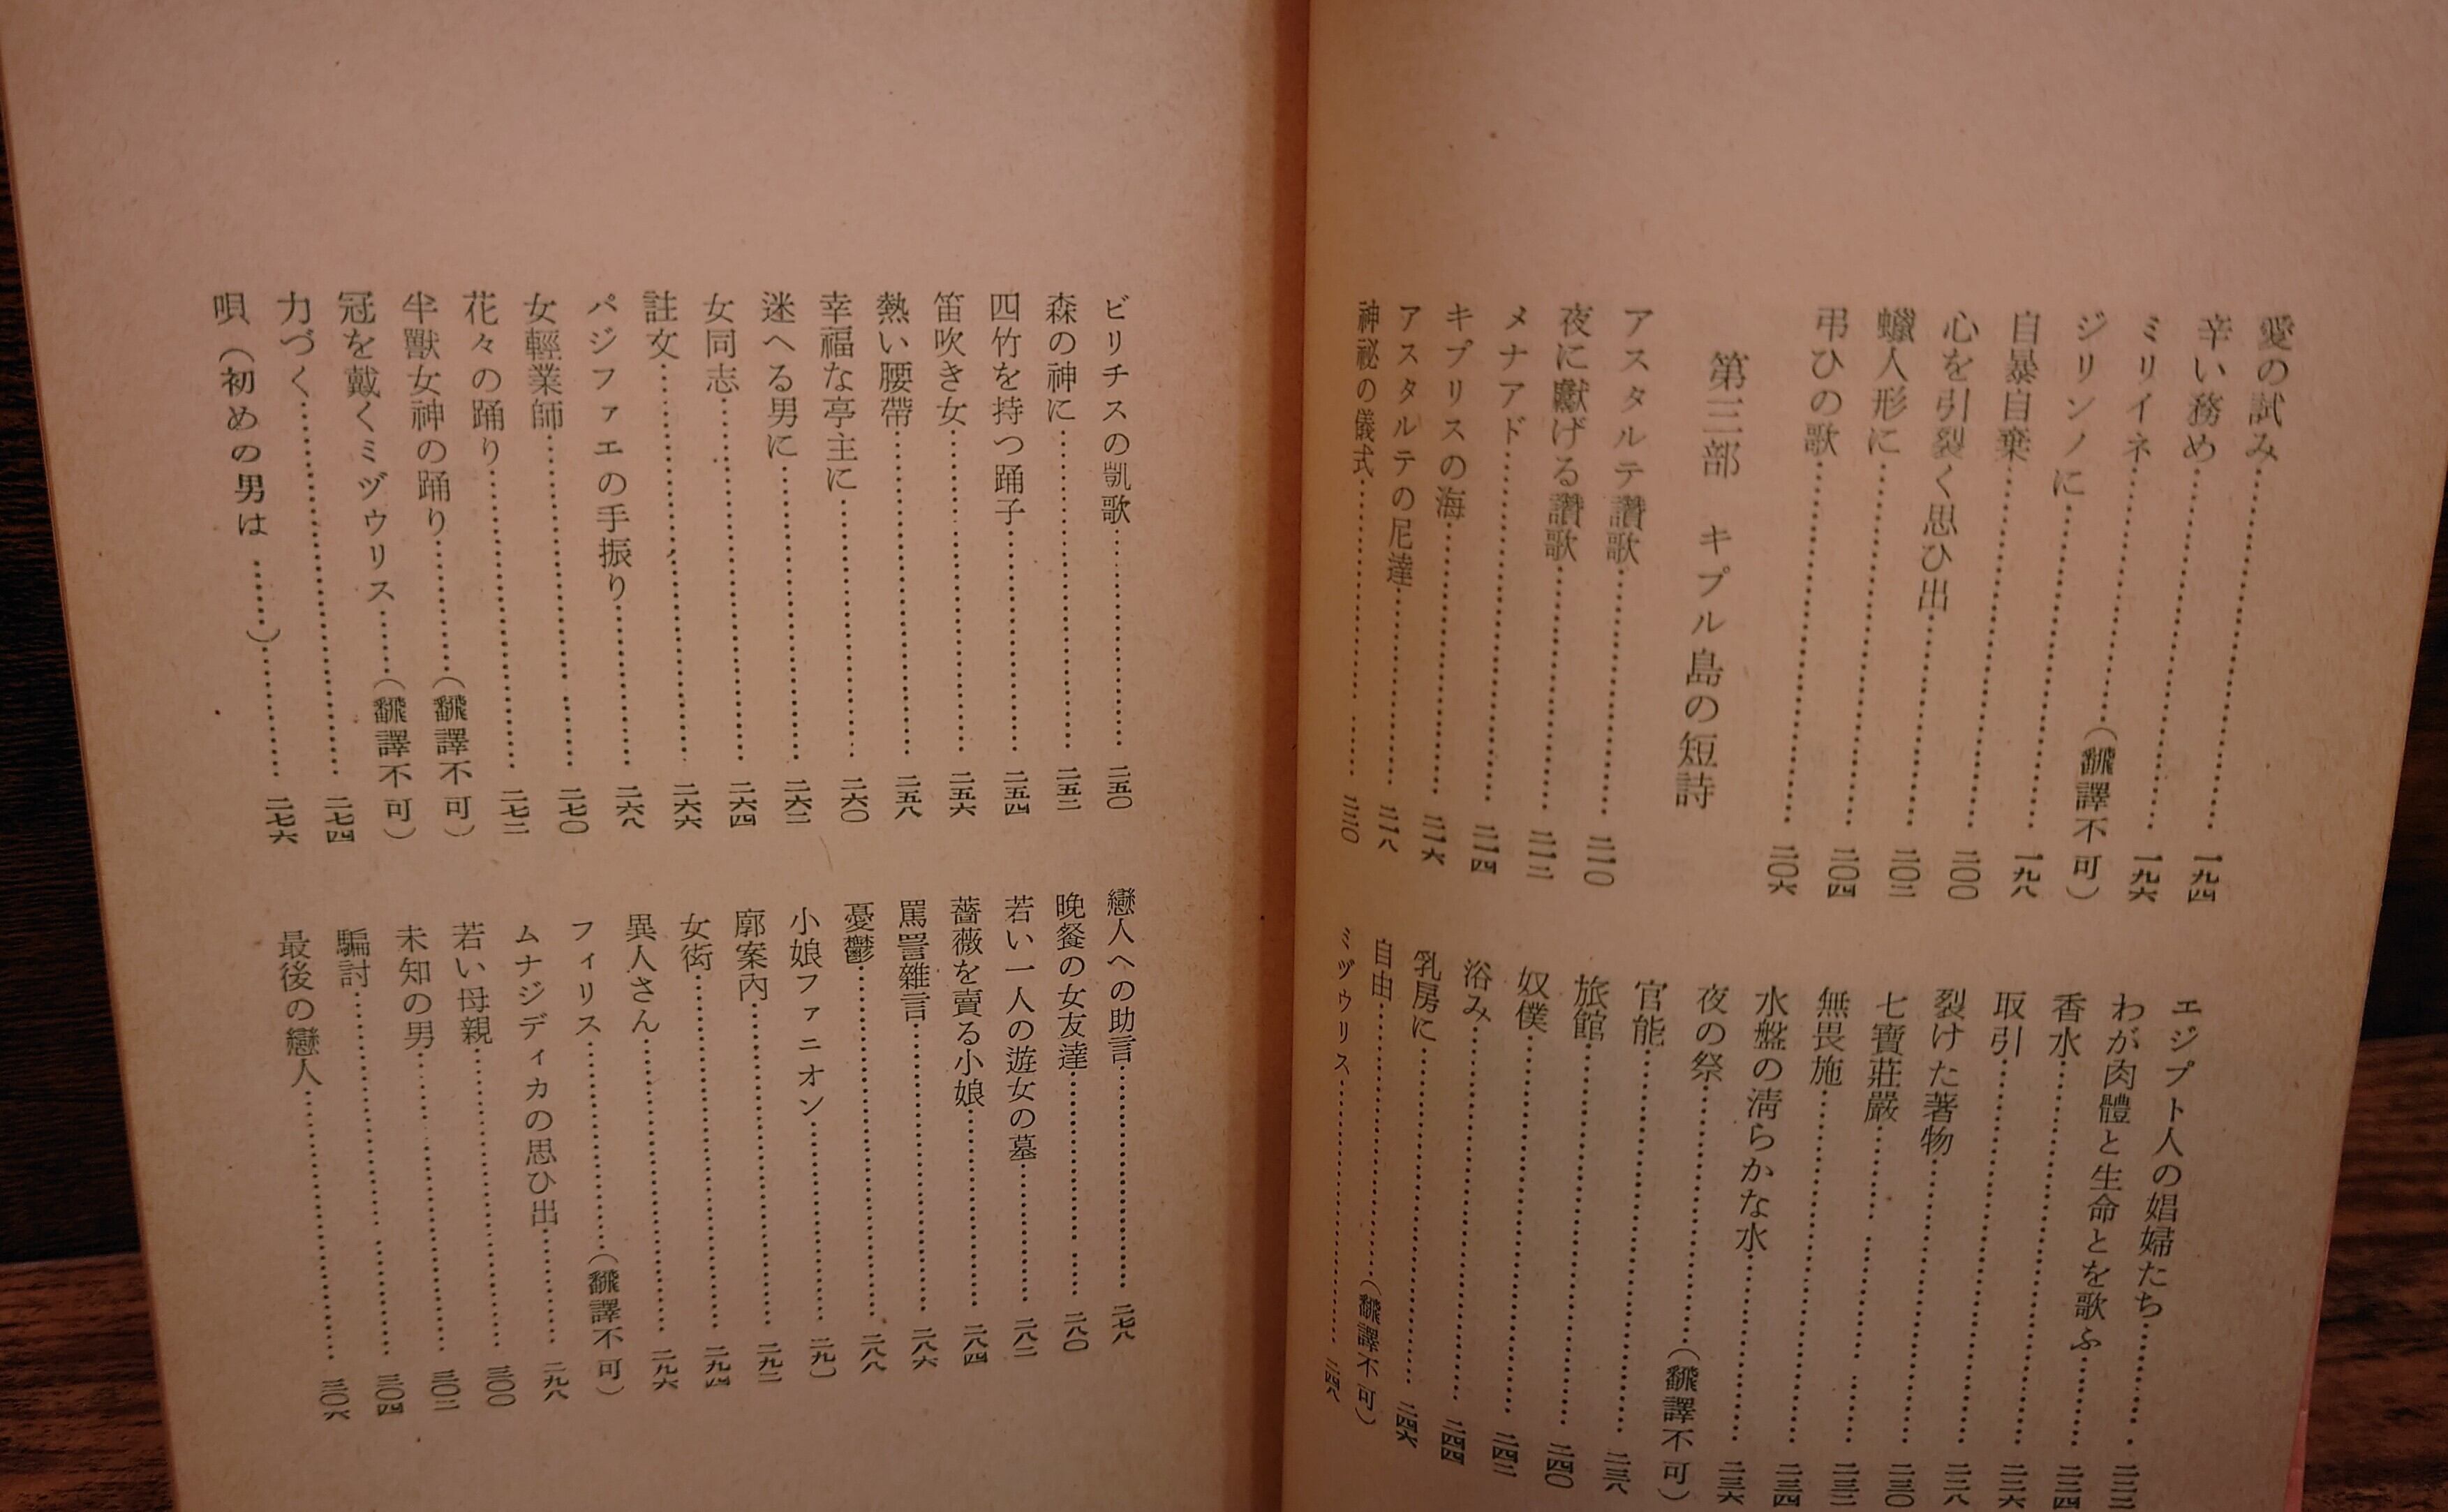 愛の試み……一九四
辛い務め……一九六
ミリイネ……(飜譯不可)
ジリンノに……一九八
自暴自棄……二〇〇
心を引裂く思ひ出……二〇二
蠟人形に……二〇四
弔ひの歌……二〇六
第三部 キプル島の短詩
アスタルテ讚歌……二一〇
夜に獻げる讚歌……二一二
メナアド……二一四
キプリスの海……二一六
アスタルテの尼達……二一八
神祕の儀式……二二〇
エジプト人の娼婦たち……二二二
わが肉體と生命とを歌ふ……二二四
香水……二二六
取引……二二八
裂けた著物……二三〇
七寶莊嚴……二三二
無畏施……二三四
水盤の淸らかな水……二三六
夜の祭……(飜譯不可)
官能……二三八
旅館……二四〇
奴僕……二四二
浴み……二四四
乳房に……二四六
自由……(飜譯不可)
ミヅウリス……二四八
ビリチスの凱歌……二五〇
森の神に……二五二
四竹を持つ踊子……二五四
笛吹き女……二五六
熱い腰帶……二五八
幸福な亭主に……二六〇
迷へる男に……二六二
女同志……二六四
註文……二六六
パジファエの手振り……二六八
女輕業師……二七〇
花々の踊り……二七二
半獸女神の踊り……(飜譯不可)
冠を戴くミヅウリス……(飜譯不可)
力づく……二七四
唄(初めの男は……)……二七六
戀人への助言……二七八
晩餐の女友達……二八〇
若い一人の遊女の墓……二八二
薔薇を賣る小娘……二八四
罵詈雜言……二八六
憂鬱……二八八
小娘ファニオン……二九〇
廓案內……二九二
女衒……二九四
異人さん……二九六
フィリス……(飜譯不可)
ムナジディカの思ひ出……二九八
若い母親……三〇〇
未知の男……三〇二
騙討……三〇四
最後の戀人……三〇六